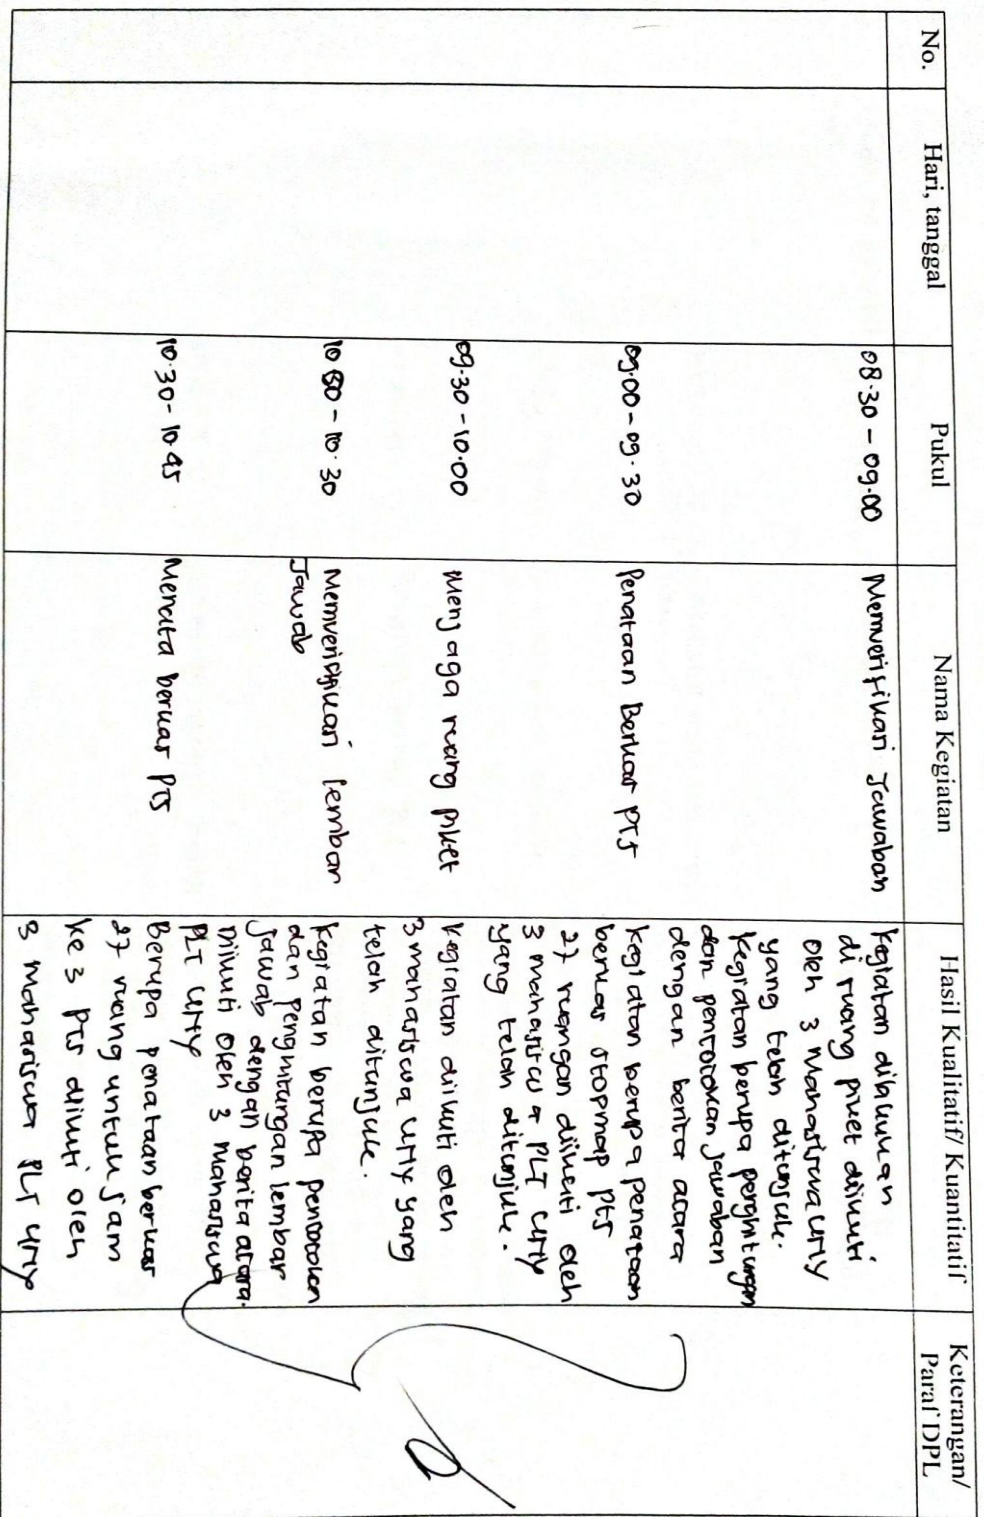 No.
Hari, tanggal
Pukul
Nama Kegiatan
Hasil Kualitatif/ Kuantitatif
Keterangan/
Paraf DPL
08.30 - 09.00
Memverifikasi Jawaban
Kegiatan dilakukan
di ruang piket diikuti
oleh 3 Mahasiswa UNY
yang telah ditunjuk.
Kegiatan berupa penghitungan
dan pencocokan jawaban
dengan berita acara
09.00 - 09.30
Penataan Berkas PTS
Kegiatan berupa penataan
berkas stopmap PTS
27 ruangan diikuti oleh
3 mahasiswa PLT UNY
yang telah ditunjuk.
09.30 - 10.00
Menjaga ruang piket
Kegiatan diikuti oleh
3 mahasiswa UNY yang
telah ditunjuk.
10.00 - 10.30
Memverifikasi lembar
Jawab
Kegiatan berupa pencocokan
dan penghitungan lembar
jawab dengan berita acara.
Diikuti oleh 3 Mahasiswa
PLT UNY
10.30 - 10.45
Menata berkas PTS
Berupa penataan berkas
27 ruang untuk jam
ke 3 PTS diikuti oleh
3 mahasiswa PLT UNY